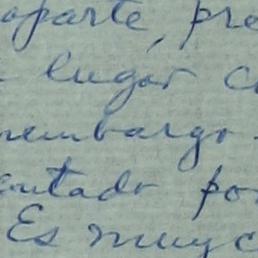 aparte, pre
lugar c
nembargo
entado po
Es muy c